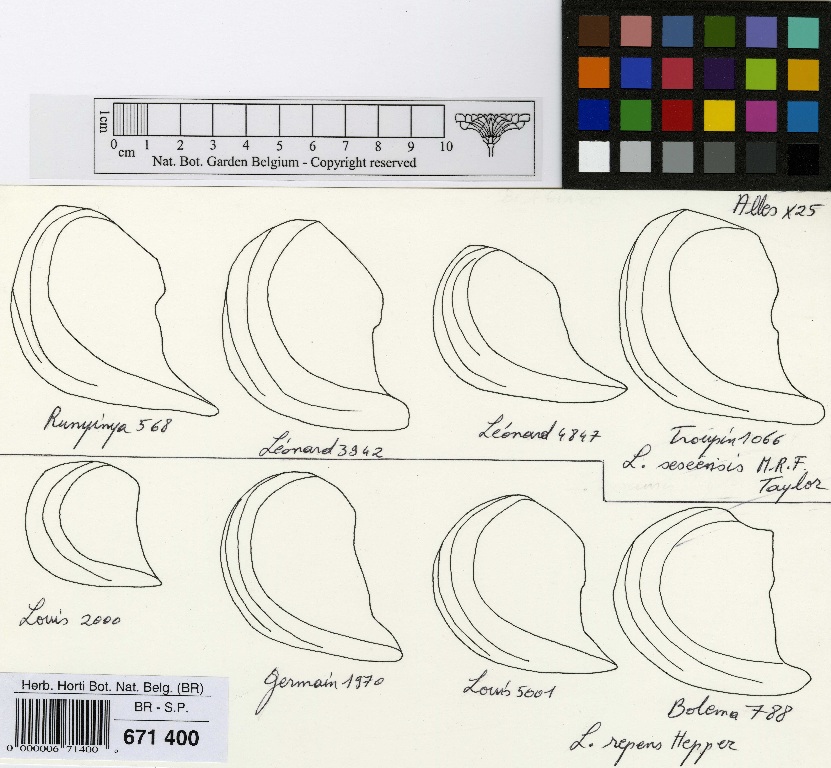 1cm
0 1 2 3 4 5 6 7 8 9 10
cm
Nat. Bot. Garden Belgium - Copyright reserved
Alles x25
Runyinya 568
Léonard 3942
Léonard 4847
Troupin 1066
L. seseensis M.R.F.
Taylor
Louis 2000
Germain 1970
Louis 5001
Bolema 788
L. repens Hepper
Herb. Horti Bot. Nat. Belg. (BR)
BR - S.P.
671 400
0 000006 71400